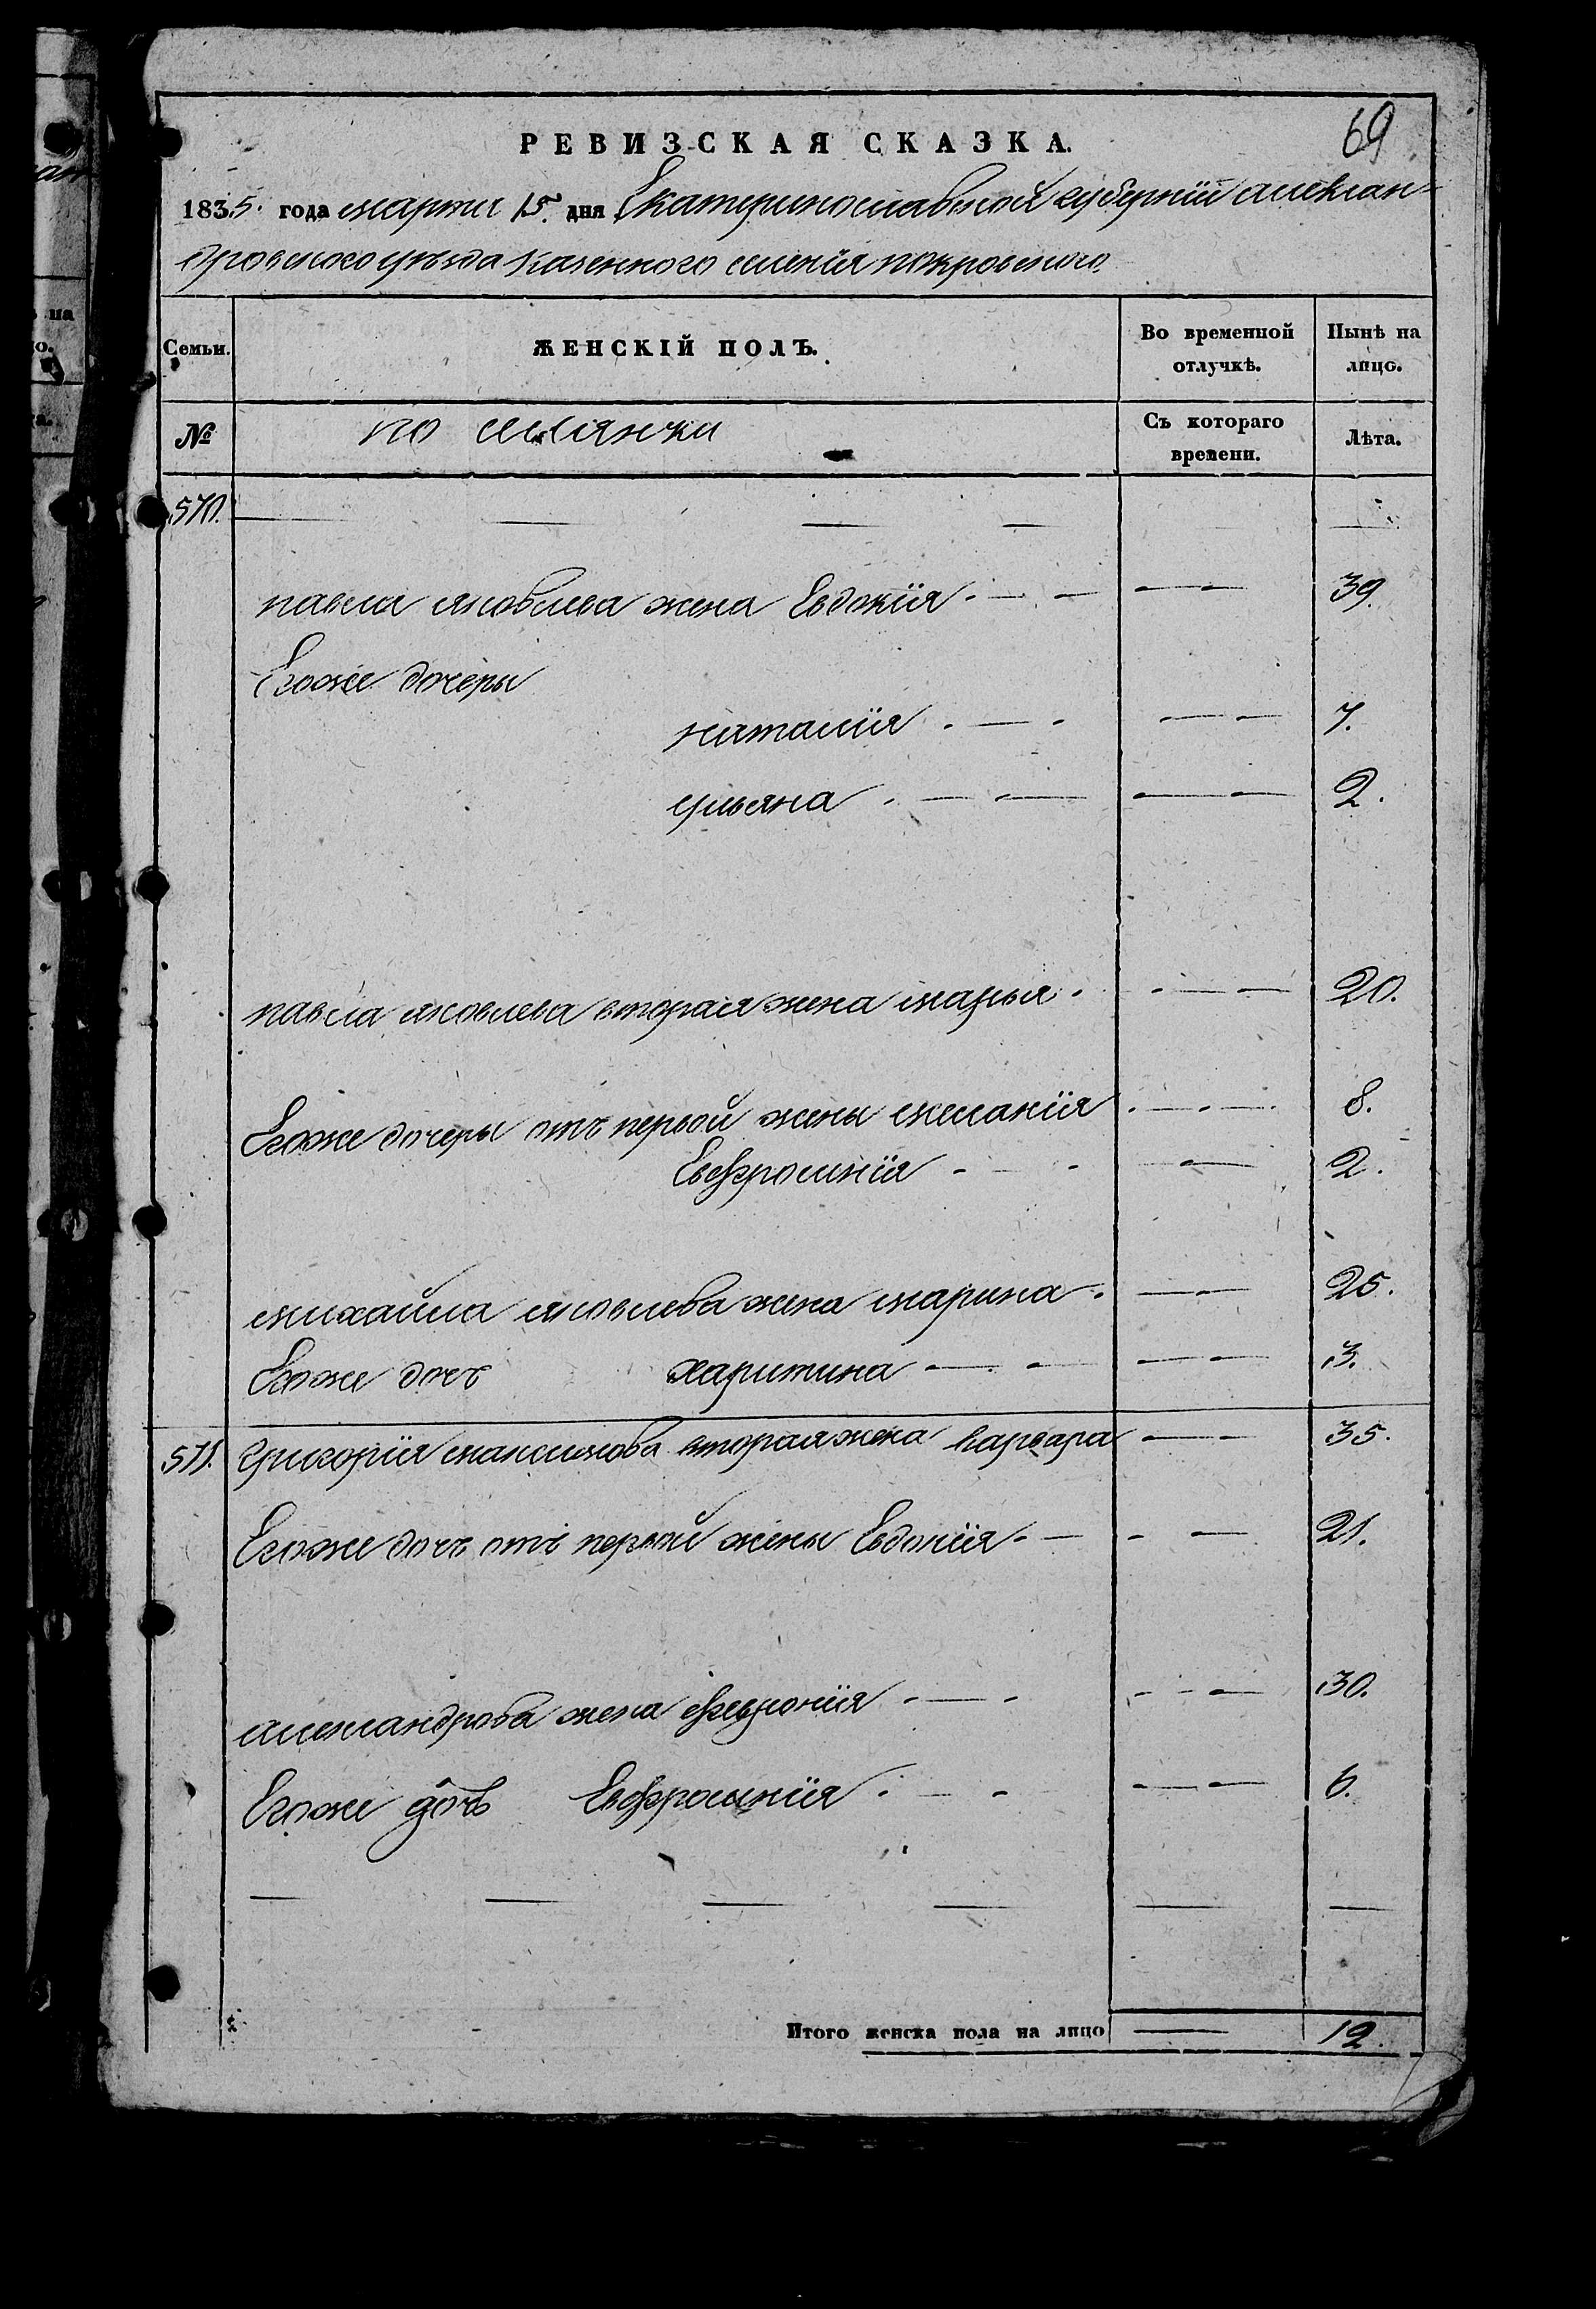 69
РЕВИЗСКАЯ СКАЗКА.
1835. года марта 15. дня Екатеринославской губернии алексан-
дровского уезда казенного селения покровского.
Семьи. ЖЕНСКІЙ ПОЛЪ. Во временной отлучкѣ. Нынѣ на лицо.
№ поселянки Съ котораго времени. Лѣта.
570.
павла яковлева жена Евдокия 39.
Егоже дочеры
наталия 7.
ульяна 2.
павла яковлева вторая жена марья 20.
Егоже дочеры отъ первой жены мелания 8.
Евфросиния 2.
михайла яковлева жена марина 25.
Егоже дочъ харитина 3.
571. григория максимова вторая жена варвара 35.
Егоже дочъ отъ первой жены Евдокия 21.
александрова жена феврония 30.
Егоже дочъ Евфросиния 6.
Итого женска пола на лицо 12.